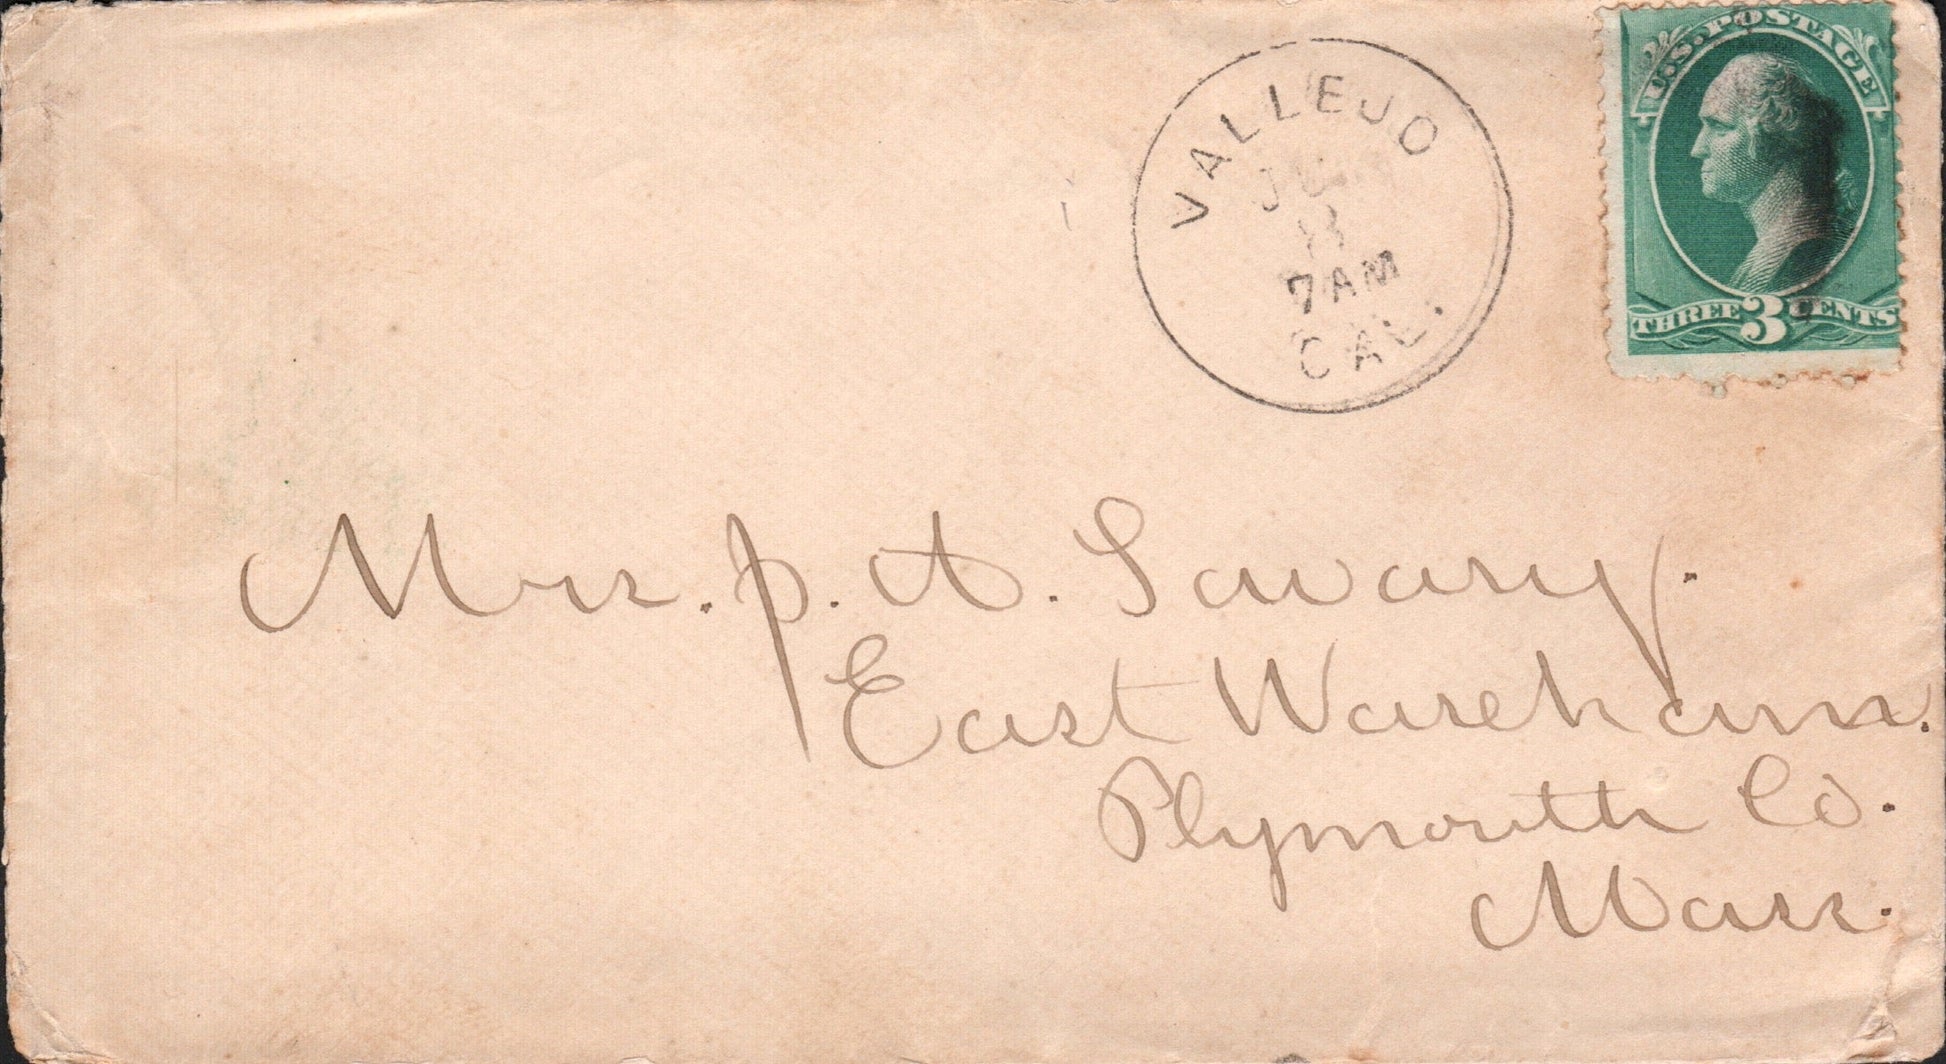 VALLEJO
7AM
CAL.
U.S. POSTAGE
THREE 3 CENTS
Mrs. J. A. Savary.
East Wareham.
Plymouth Co.
Mass.